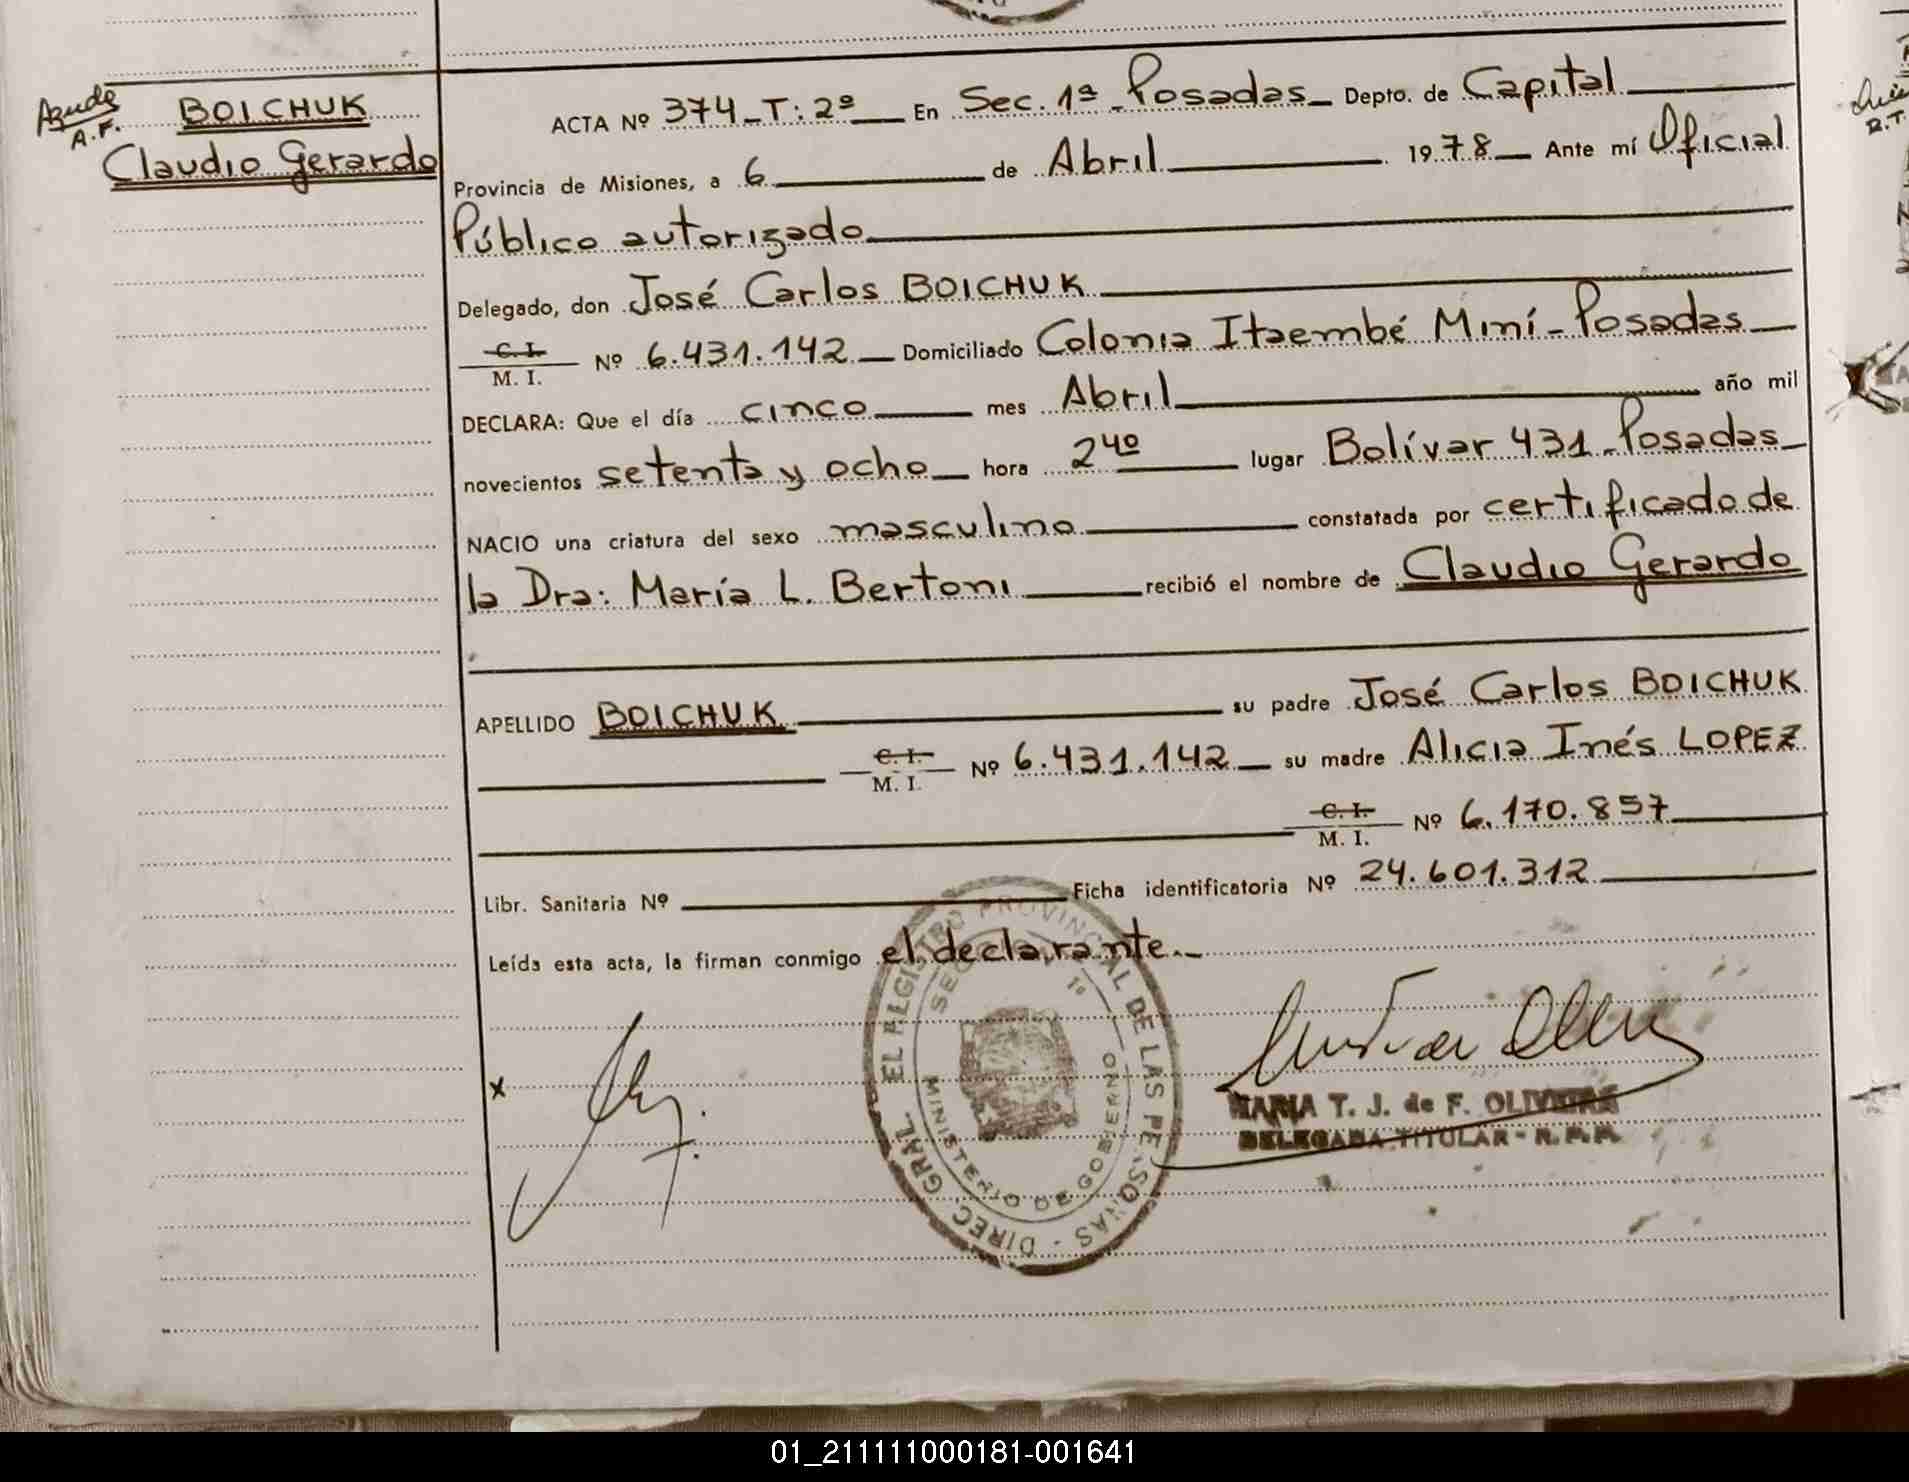 BOICHUK
A.F.
Claudio Gerardo
ACTA Nº 374_T: 2º En Sec. 1ª _ Posadas_ Depto. de Capital
Provincia de Misiones, a 6 de Abril 1978 Ante mí Oficial
Público autorizado
Delegado, don José Carlos BOICHUK
C. I. / M. I. Nº 6.431.142 Domiciliado Colonia Itaembé Miní - Posadas
DECLARA: Que el día cinco mes Abril año mil
novecientos setenta y ocho hora 2⁴⁰ lugar Bolívar 431_Posadas
NACIO una criatura del sexo masculino constatada por certificado de
la Dra: María L. Bertoni recibió el nombre de Claudio Gerardo
APELLIDO BOICHUK su padre José Carlos BOICHUK
C. I. / M. I. Nº 6.431.142 su madre Alicia Inés LOPEZ
C. I. / M. I. Nº 6.170.857
Libr. Sanitaria Nº Ficha identificatoria Nº 24.601.312
Leída esta acta, la firman conmigo el declarante._
x
REGISTRO PROVINCIAL DE LAS PERSONAS - DIREC. GRAL.
MINISTERIO DE GOBIERNO
MARIA T. J. de F. OLIVEIRA
DELEGADA TITULAR - R. P. P.
R.T.
01_211111000181-001641